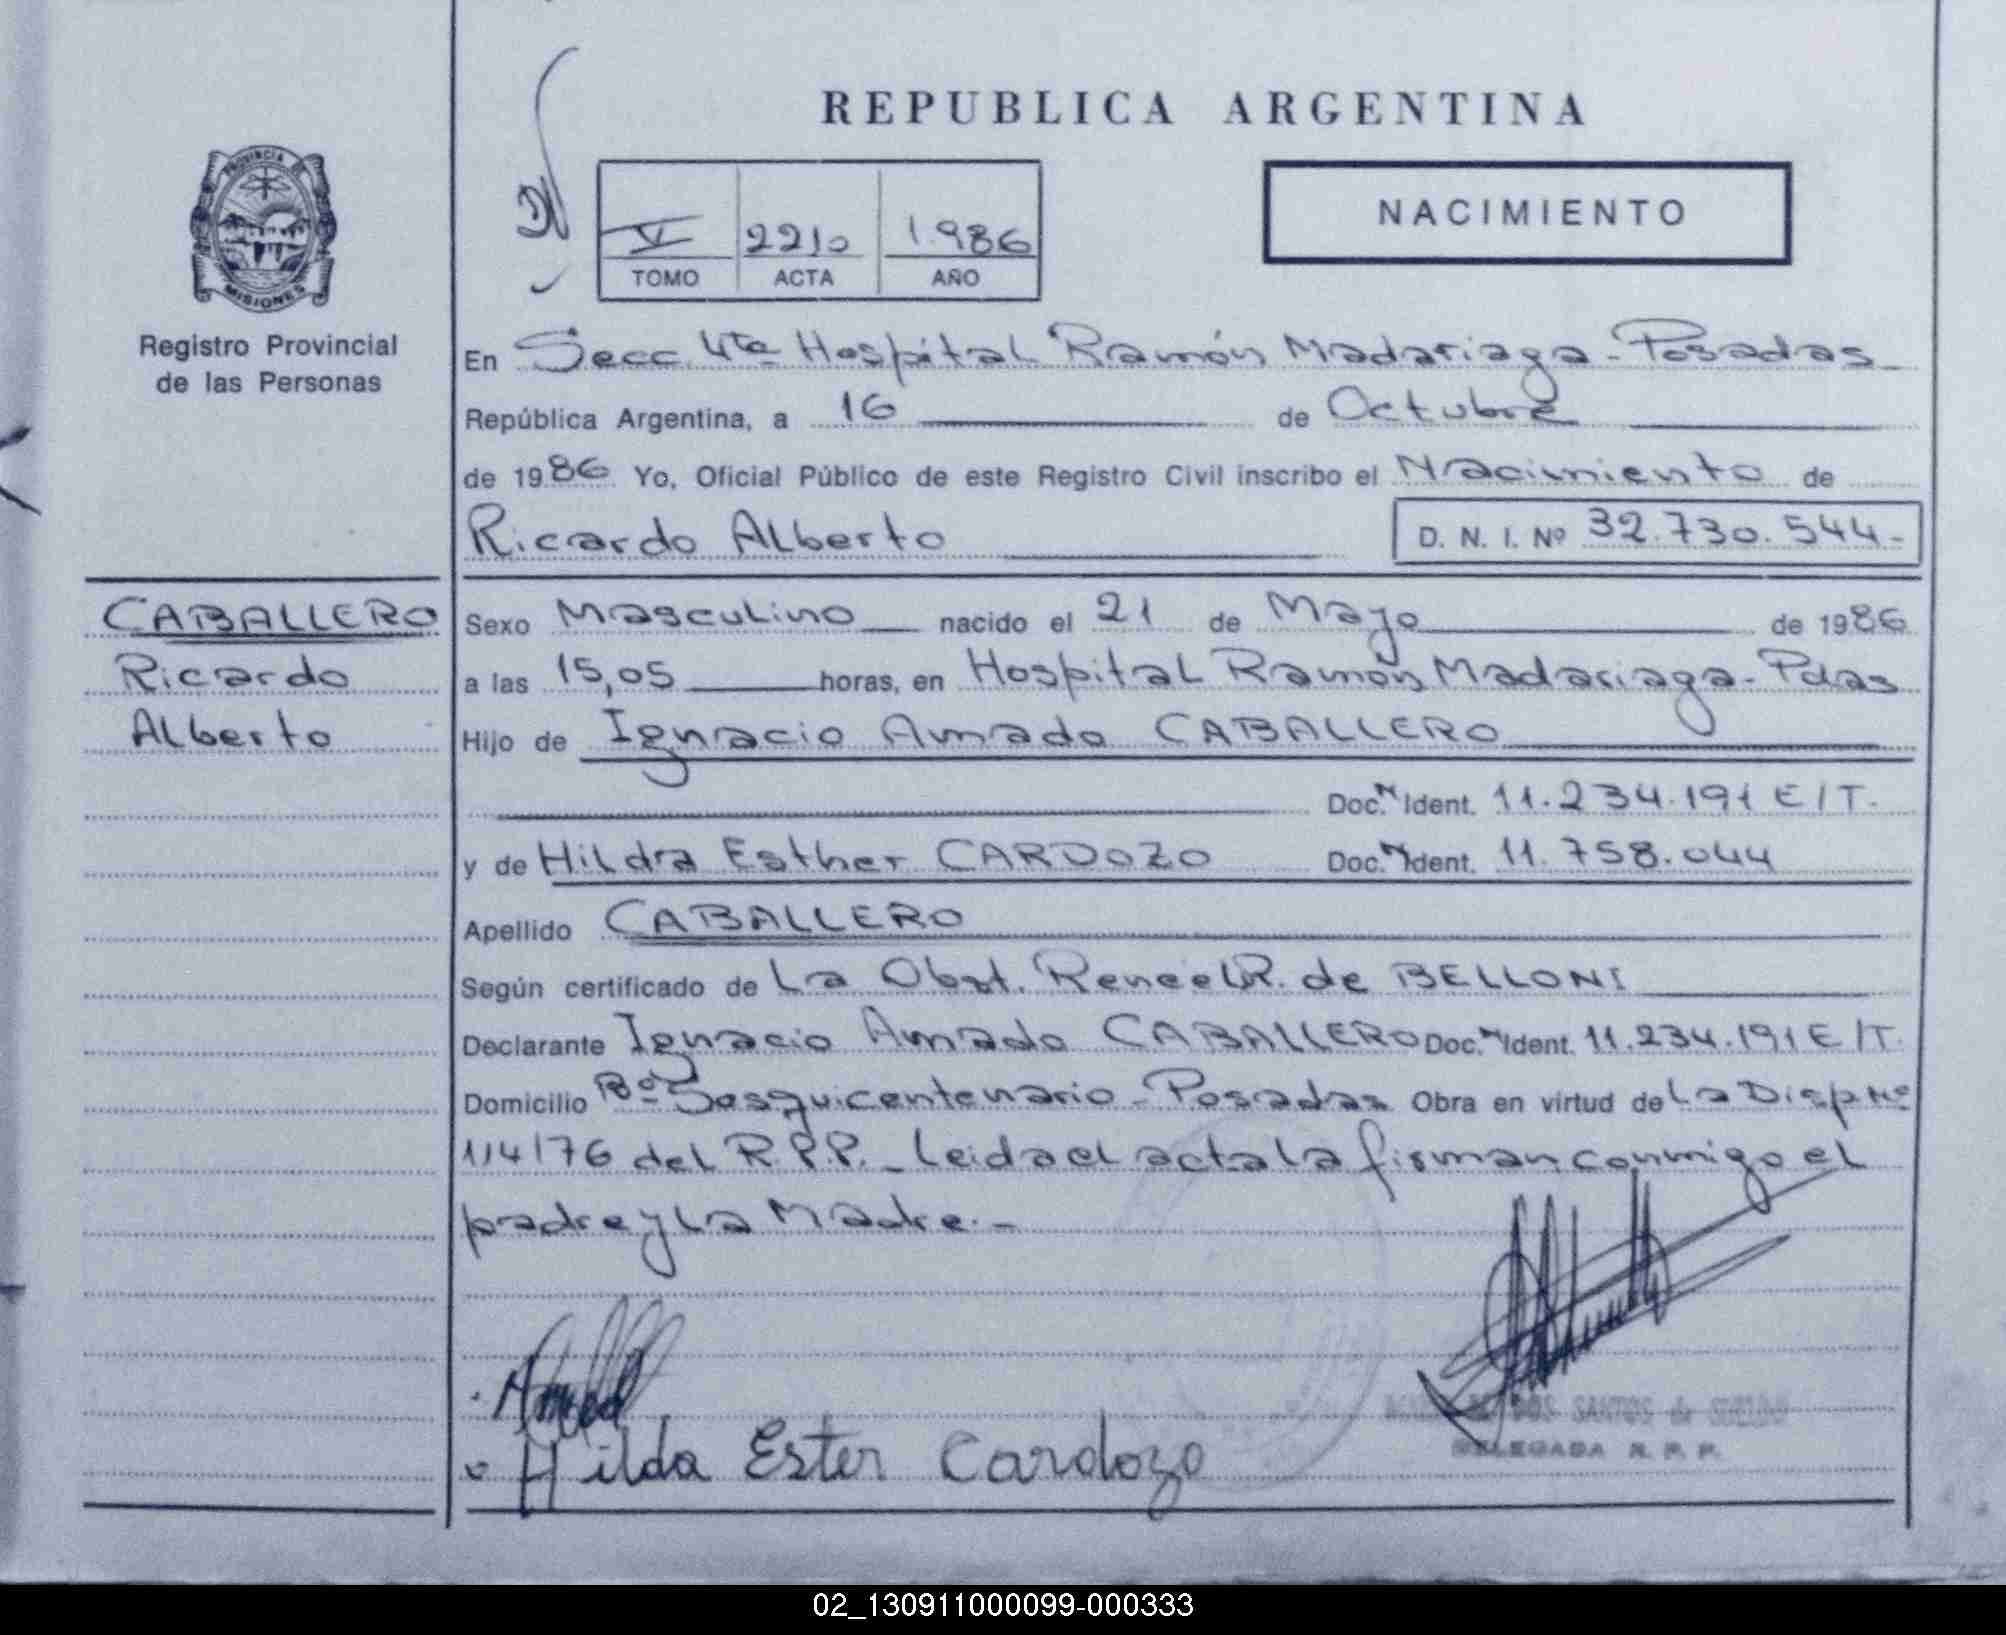 REPUBLICA ARGENTINA
PROVINCIA DE
MISIONES
Registro Provincial
de las Personas
V 2210 1.986
TOMO ACTA AÑO
NACIMIENTO
En Secc. 4ta Hospital Ramón Madariaga - Posadas
República Argentina, a 16 de Octubre
de 1986 Yo, Oficial Público de este Registro Civil inscribo el Nacimiento de
Ricardo Alberto D. N. I. Nº 32.730.544-
CABALLERO
Ricardo
Alberto
Sexo Masculino nacido el 21 de Mayo de 1986
a las 15,05 horas, en Hospital Ramón Madariaga - Pdas
Hijo de Ignacio Amado CABALLERO
Doc. Ident. 11.234.191 E/T.
y de Hilda Esther CARDOZO Doc. Ident. 11.758.044
Apellido CABALLERO
Según certificado de La Obst. Renée R. de BELLONI
Declarante Ignacio Amado CABALLERO Doc. Ident. 11.234.191 E/T.
Domicilio Bº Sesquicentenario - Posadas Obra en virtud de La Disp Nº
114/76 del R.P.P. - Leida el acta la firman conmigo el
padre y La Madre. -
Hilda Ester Cardozo
DOS SANTOS de
DELEGADA R. P. P.
02_130911000099-000333